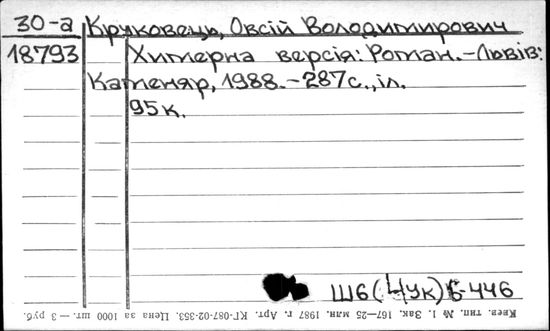 30-а Круковець, Овсій Володимирович
18793 Химерна версія: Роман.-Львів:
Каменяр, 1988.-287с.,іл.
95к.
Ш6(4Ук)6-446
Киев. тип. № 1. Зак. 167—25 млн. 1987 г. Арт. КГ-087-02-353. Цена за 1000 шт. — 3 руб.